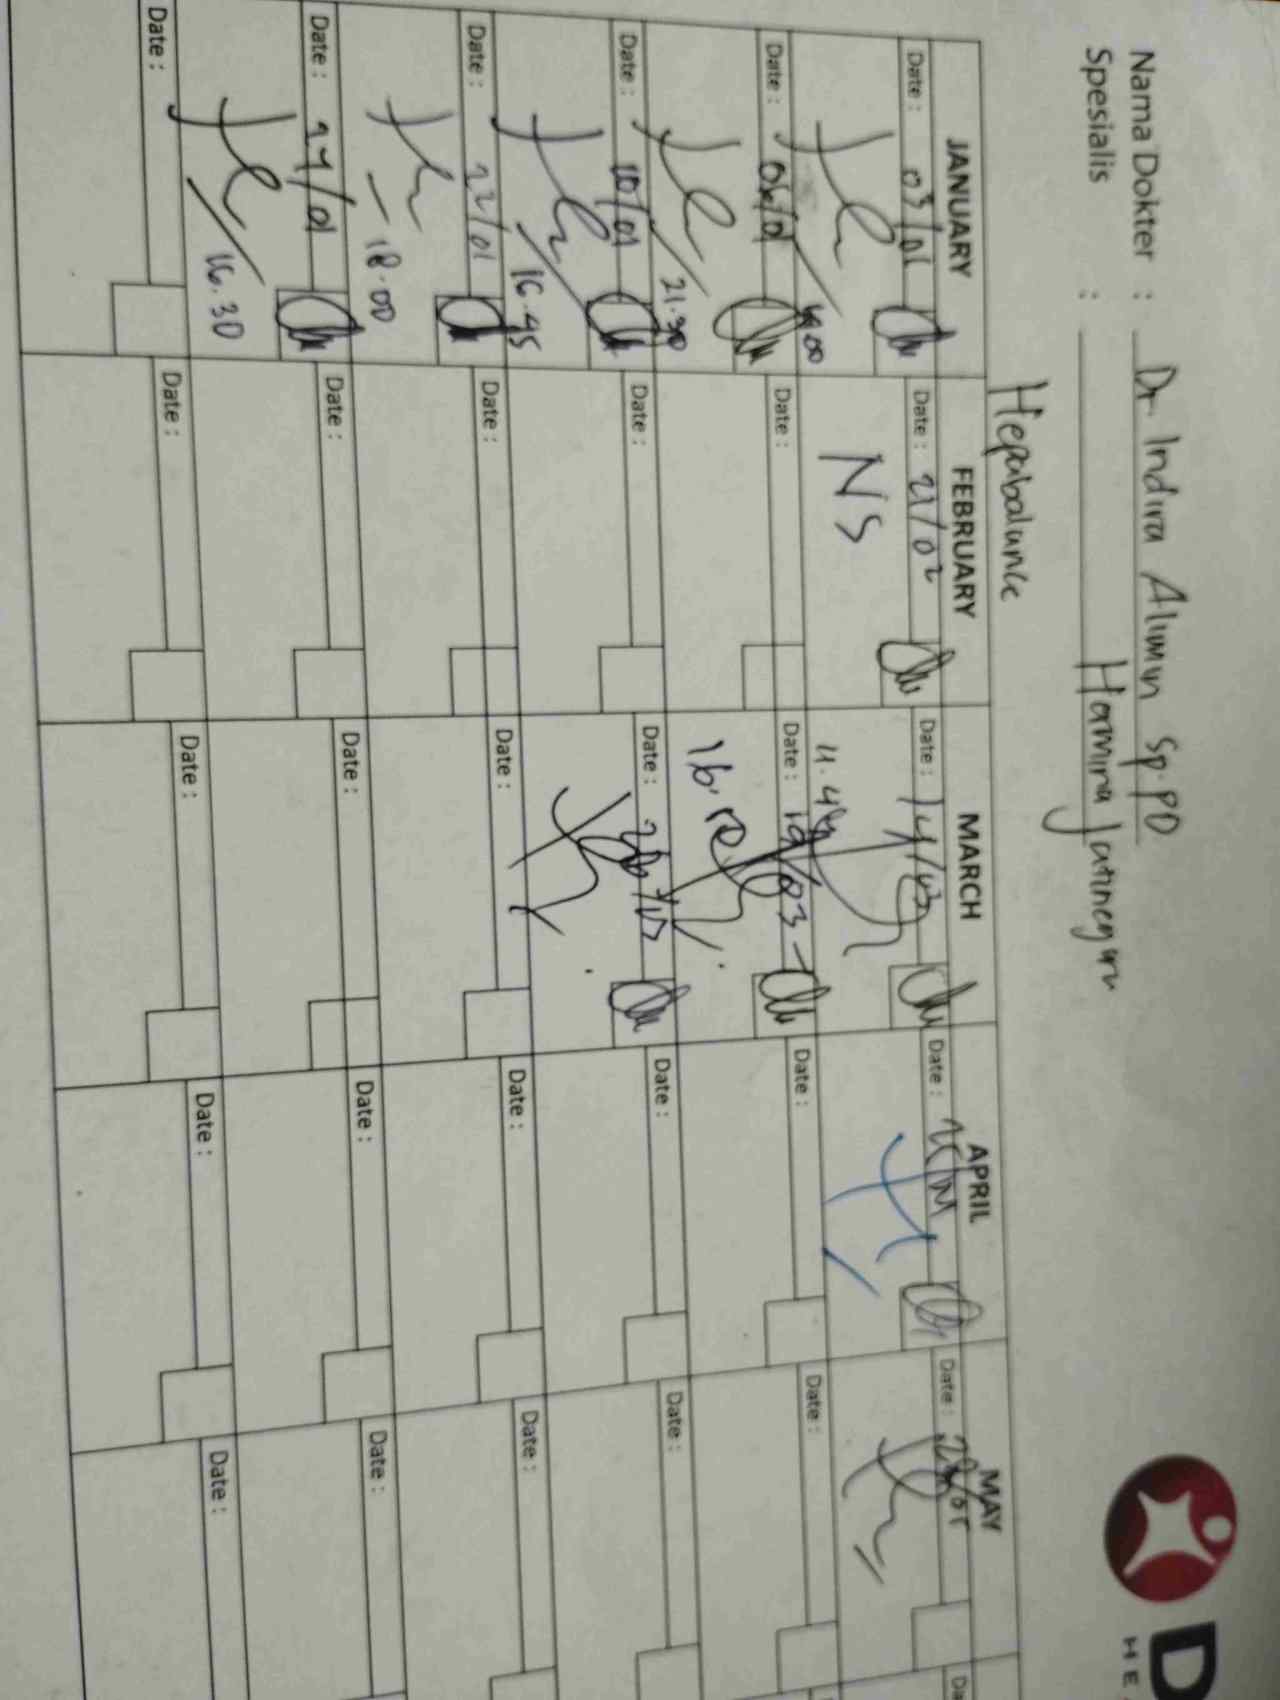 D
HE
Nama Dokter : Dr. Indira Alimin Sp.PD
Spesialis : Hermina Jatinegara
Hepabalance
JANUARY FEBRUARY MARCH APRIL MAY
Date : 03/01 Date : 21/02 Date : 14/03 Date : Date :
NS
Date : 06/01 Date : Date : 19/03 Date : Date :
21.30
Date : 10/01 Date : Date : Date : Date :
16.45
Date : 22/01 Date : Date : Date : Date :
18.00
Date : 27/01 Date : Date : Date : Date :
16.30
Date : Date : Date : Date : Date :